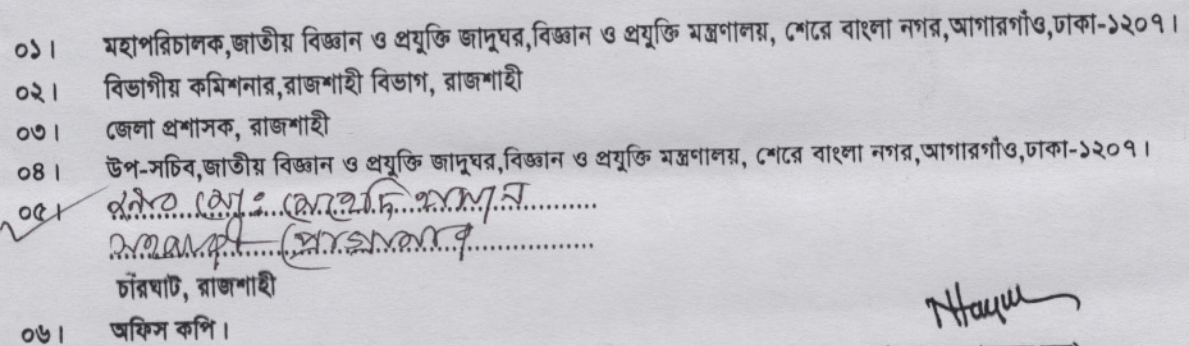 ০১। মহাপরিচালক,জাতীয় বিজ্ঞান ও প্রযুক্তি জাদুঘর,বিজ্ঞান ও প্রযুক্তি মন্ত্রণালয়, শেরে বাংলা নগর,আগারগাঁও,ঢাকা-১২০৭।
০২। বিভাগীয় কমিশনার,রাজশাহী বিভাগ, রাজশাহী
০৩। জেলা প্রশাসক, রাজশাহী
০৪। উপ-সচিব,জাতীয় বিজ্ঞান ও প্রযুক্তি জাদুঘর,বিজ্ঞান ও প্রযুক্তি মন্ত্রণালয়, শেরে বাংলা নগর,আগারগাঁও,ঢাকা-১২০৭।
০৫। জনাব মোঃ মেহেদি হাসান
সহকারী প্রোগ্রামার
চারঘাট, রাজশাহী
০৬। অফিস কপি।